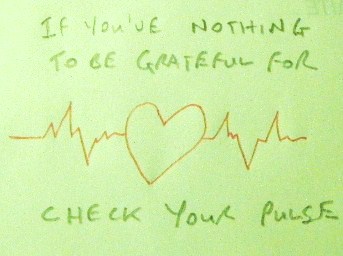 IF YOU'VE NOTHING
TO BE GRATEFUL FOR
CHECK YOUR PULSE